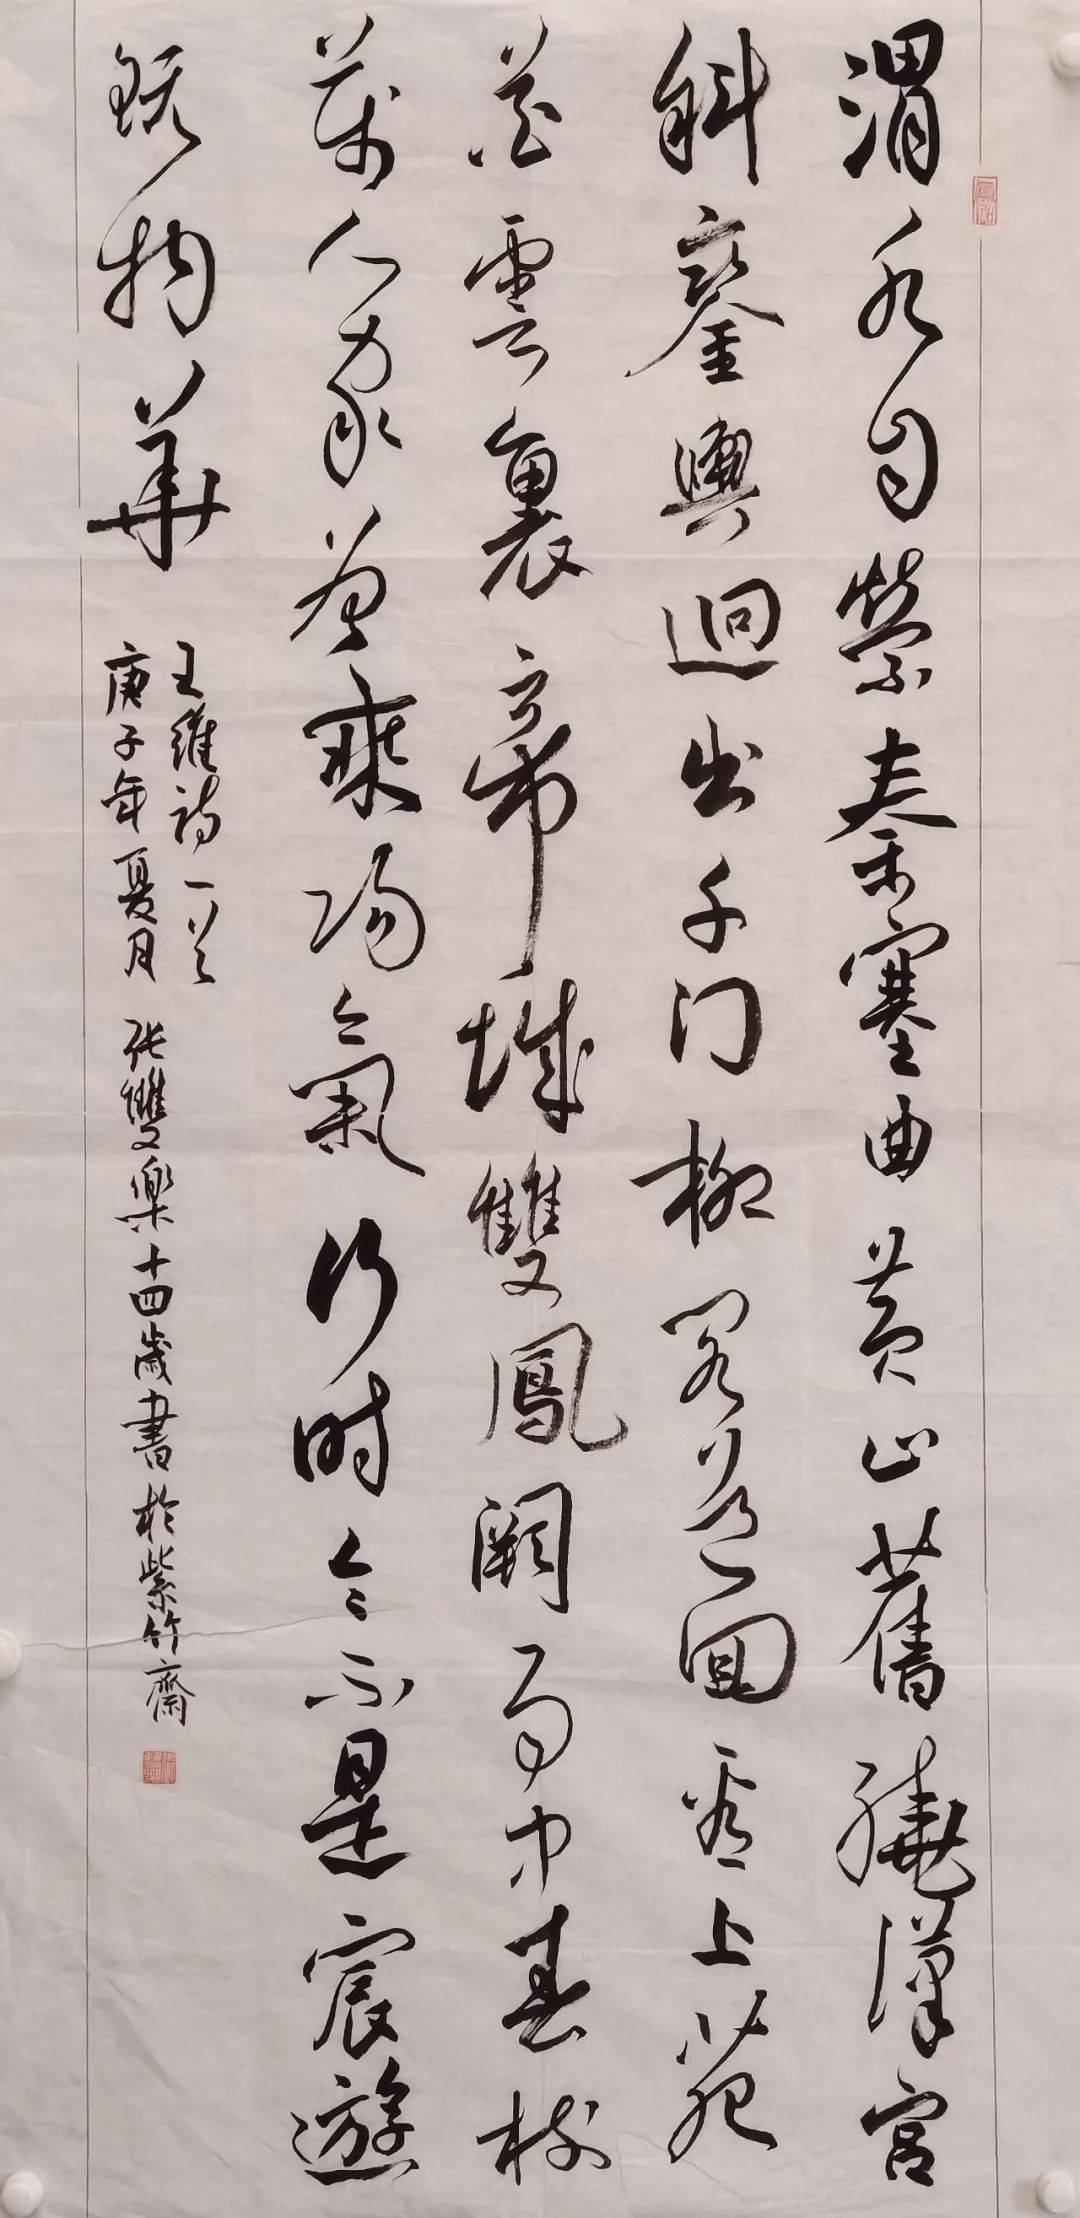 渭水自縈秦塞曲黃山舊繞漢宮
斜鑾輿迥出千門柳閣道回看上苑
花雲裏帝城雙鳳闕雨中春樹
萬人家為乘陽氣行時令不是宸遊
玩物華
王維詩一首
庚子年夏月 张雙樂十四歲書於紫竹齋